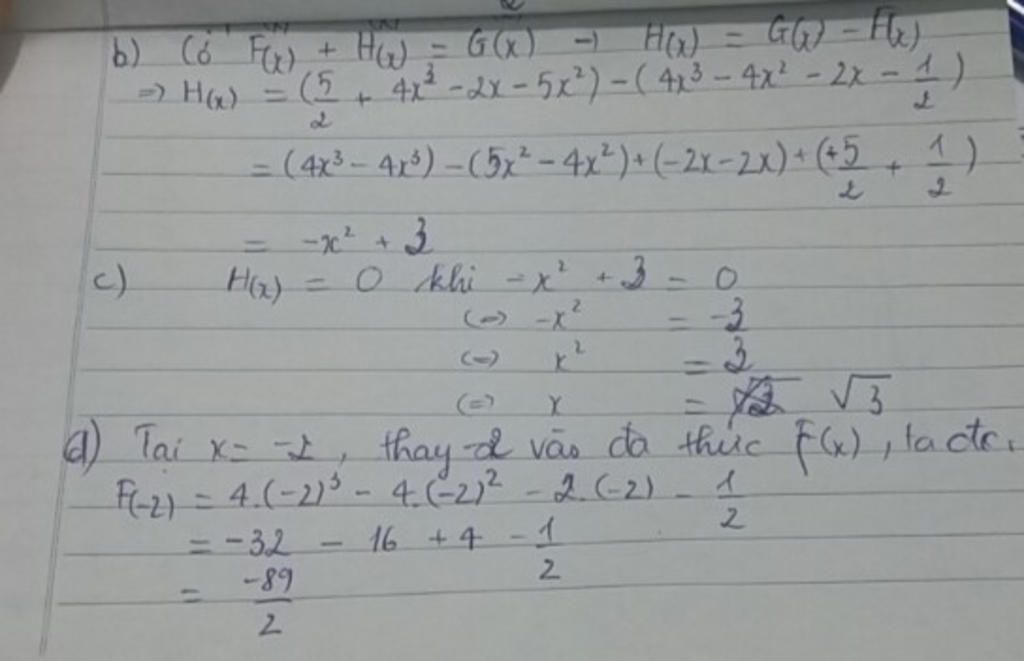 b) Có F(x) + H(x) = G(x) → H(x) = G(x) - F(x)
=> H(x) = (5/2 + 4x³ - 2x - 5x²) - (4x³ - 4x² - 2x - 1/2)
= (4x³ - 4x³) - (5x² - 4x²) + (-2x - 2x) + (+5/2 + 1/2)
= -x² + 3
c) H(x) = 0 khi -x² + 3 = 0
<=> -x² = -3
<=> x² = 3
<=> x = √3
d) Tại x = -2, thay -2 vào đa thức F(x), ta đc.
F(-2) = 4.(-2)³ - 4.(-2)² - 2.(-2) - 1/2
= -32 - 16 + 4 - 1/2
= -89/2